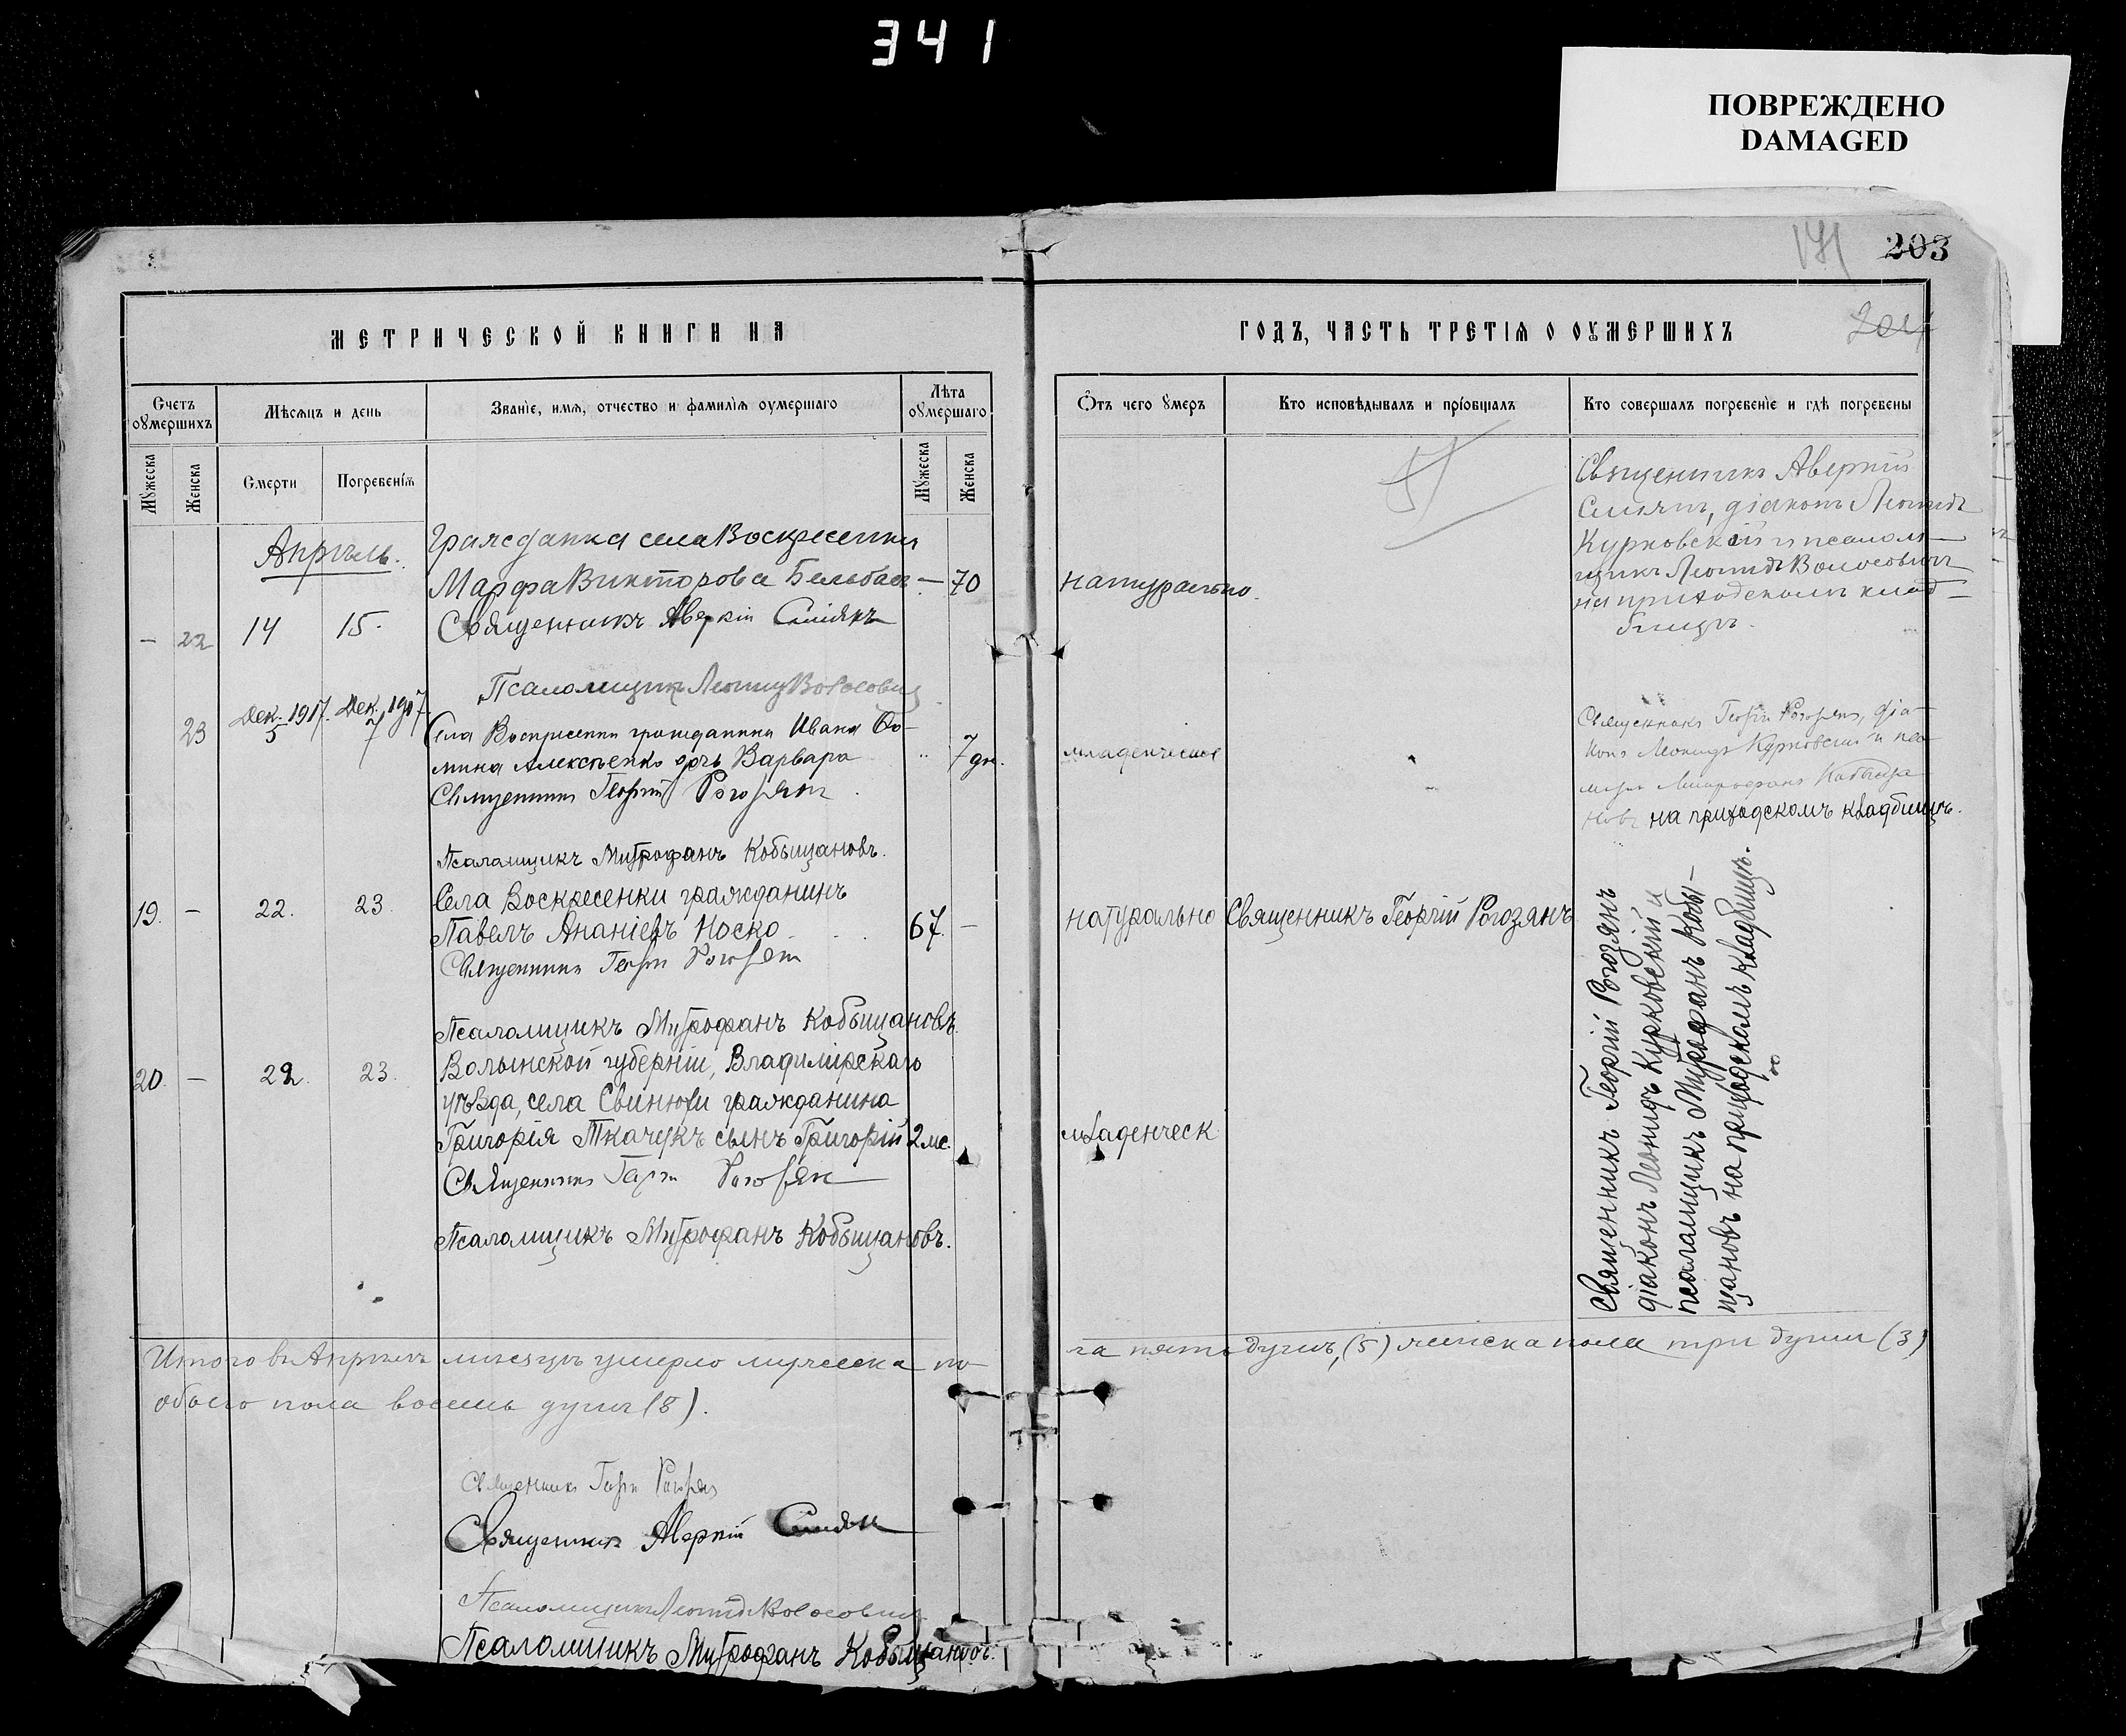 341
ПОВРЕЖДЕНО
DAMAGED
171
203
204
МЕТРИЧЕСКОЙ КНИГИ НА
Счетъ оумершихъ
Мѣсяцъ и день
Званіе, имя, отчество и фамилія оумершаго
Лѣта оумершаго
Мужеска
Женска
Смерти
Погребенія
Мужеска
Женска
Апрѣль.
Гражданка села Воскресенки
Марфа Викторова Бельбас — 70
— 22 14 15. Священникъ Аверкій Сміянъ
Псаломщикъ Леонид Волосович
23 Дек. 1917. 5 Дек. 1917. 7
Села Воскресенки гражданина Ивана Фо-
мина Алексѣенко дочь Варвара " 7 дн.
Священникъ Георгій Рогозянъ
Псаломщикъ Митрофанъ Кобыщановъ.
19. — 22. 23. Села Воскресенки гражданинъ
Павелъ Ананіевъ Носко 67. —
Священникъ Георгій Рогозянъ
Псаломщикъ Митрофанъ Кобыщановъ.
20. — 22. 23. Волынской губерніи, Владимірскаго
уѣзда, села Свинюхи гражданина
Григорія Ткачукъ сынъ Григорій 2 мс.
Священникъ Георгій Рогозян
Псаломщикъ Митрофанъ Кобыщановъ.
Итого въ Апрѣлѣ мѣсяцѣ умерло мужеска по-
обоего пола восемь душъ (8).
Священникъ Георгій Рогозянъ
Священникъ Аверкій Сміян
Псаломщикъ Леонидъ Волосович
Псаломщикъ Митрофанъ Кобыщановъ.
ГОДЪ, ЧАСТЬ ТРЕТІЯ О ОУМЕРШИХЪ
Отъ чего умеръ
Кто исповѣдывалъ и пріобщалъ
Кто совершалъ погребеніе и гдѣ погребены
Священникъ Аверкій
Сміянъ, діаконъ Леонидъ
Курковскій и псалом-
щикъ Леонидъ Волосович
на приходскомъ клад-
бищѣ.
натурально.
Священникъ Георгій Рогозянъ, діа-
конъ Леонидъ Курковскій и псо
Митрофанъ Кобыща
новъ на приходскомъ кладбищѣ.
младенческ
натурально Священникъ Георгій Рогозянъ
младенческ
Священникъ Георгій Рогозянъ
діаконъ Леонидъ Курковскій и
псаломщикъ Митрофанъ Кобы-
щановъ на приходскомъ кладбищѣ.
ла пять душъ, (5) женска пола три души (3)